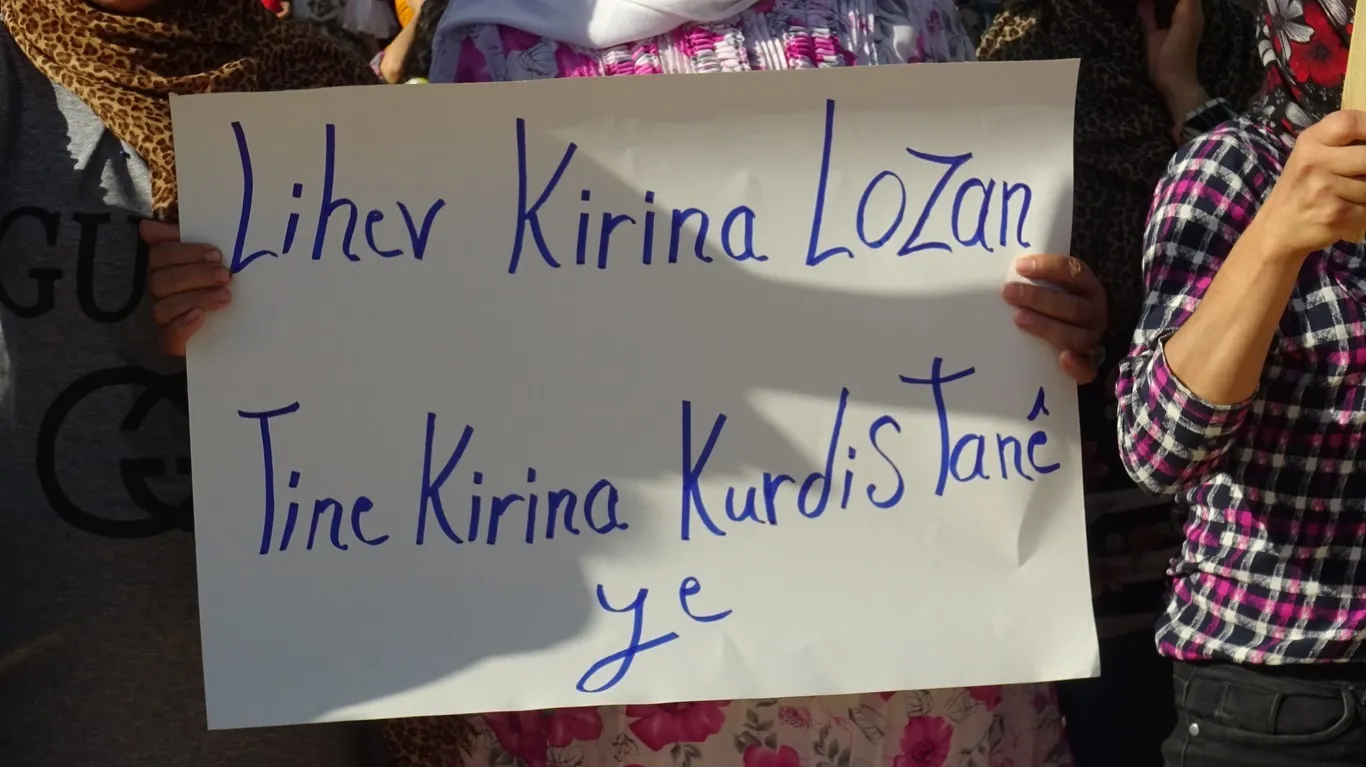 Lihev Kirina Lozan
Tine Kirina KurdisTanê
ye
GU
GG